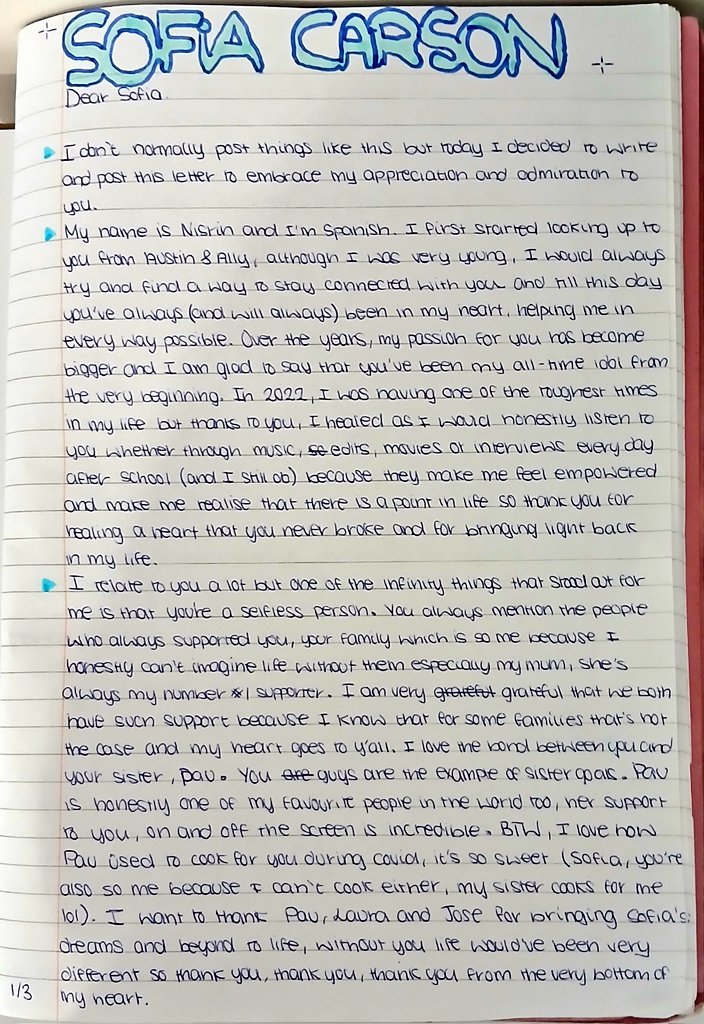 SOFiA CARSON
Dear Sofia.
I don't normally post things like this but today I decided to write
and post this letter to embrace my appreciation and admiration to
you.
My name is Nisrin and I'm Spanish. I first started looking up to
you from Austin & Ally, although I was very young, I would always
try and find a way to stay connected with you and till this day
you've always (and will always) been in my heart, helping me in
every way possible. Over the years, my passion for you has become
bigger and I am glad to say that you've been my all-time idol from
the very beginning. In 2022, I was having one of the roughest times
in my life but thanks to you, I healed as I would honestly listen to
you whether through music, se edits, movies or interviews everyday
after school (and I still do) because they make me feel empowered
and make me realise that there is a point in life so thank you for
healing a heart that you never broke and for bringing light back
in my life.
I relate to you a lot but one of the infinity things that stood out for
me is that you're a selfless person. You always mention the people
who always supported you, your family which is so me because I
honestly can't imagine life without them especially my mum, she's
always my number #1 supporter. I am very grateful grateful that we both
have such support because I know that for some families that's not
the case and my heart goes to y'all. I love the bond between you and
your sister, Pau. You are guys are the example of sister goals. Pau
is honestly one of my favourite people in the world too, her support
to you, on and off the screen is incredible. BTW, I love how
Pau used to cook for you during covid, it's so sweet (Sofia, you're
also so me because I can't cook either, my sister cooks for me
lol). I want to thank Pau, Laura and Jose for bringing Sofia's
dreams and beyond to life, without you life would've been very
different so thank you, thank you, thank you from the very bottom of
my heart.
1/3